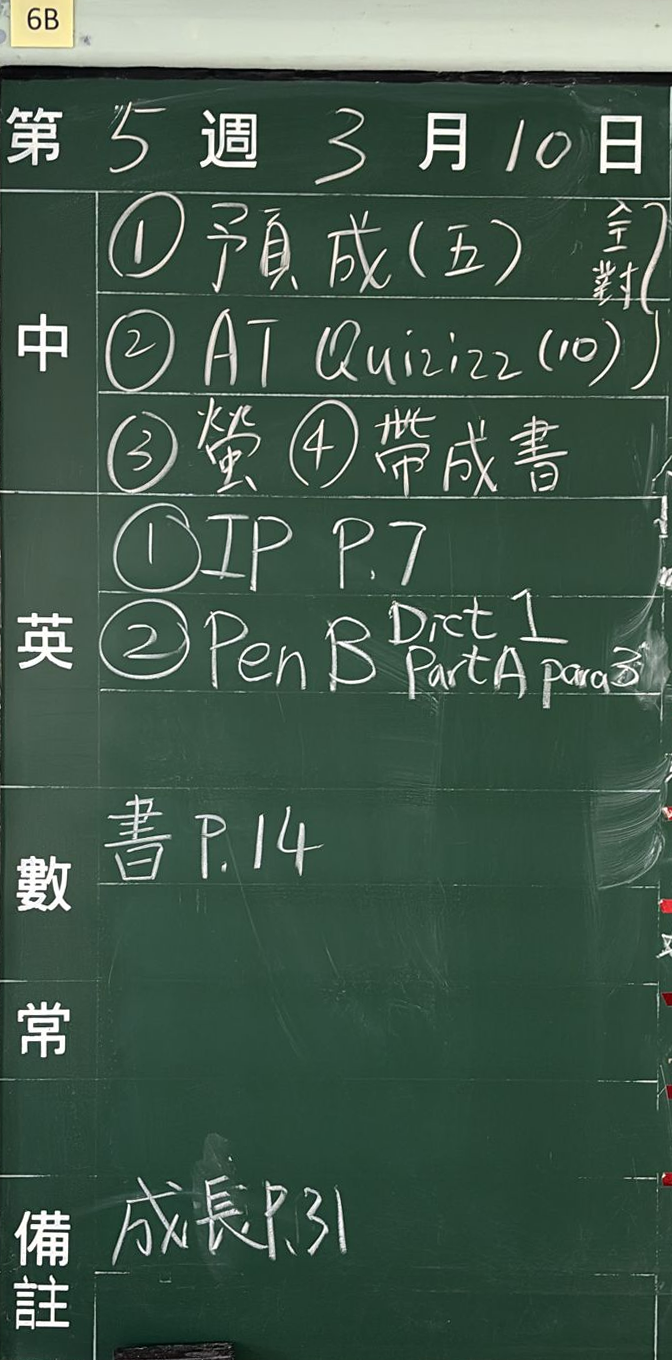 6B
第 5 週 3 月 10 日
中
① 預成(五) 全對
② AT Quizizz (10)
③ 螢 ④ 帶成書
英
① IP P.7
② Pen B Dict 1
Part A para3
數
書 P.14
常
備註
成長P.31